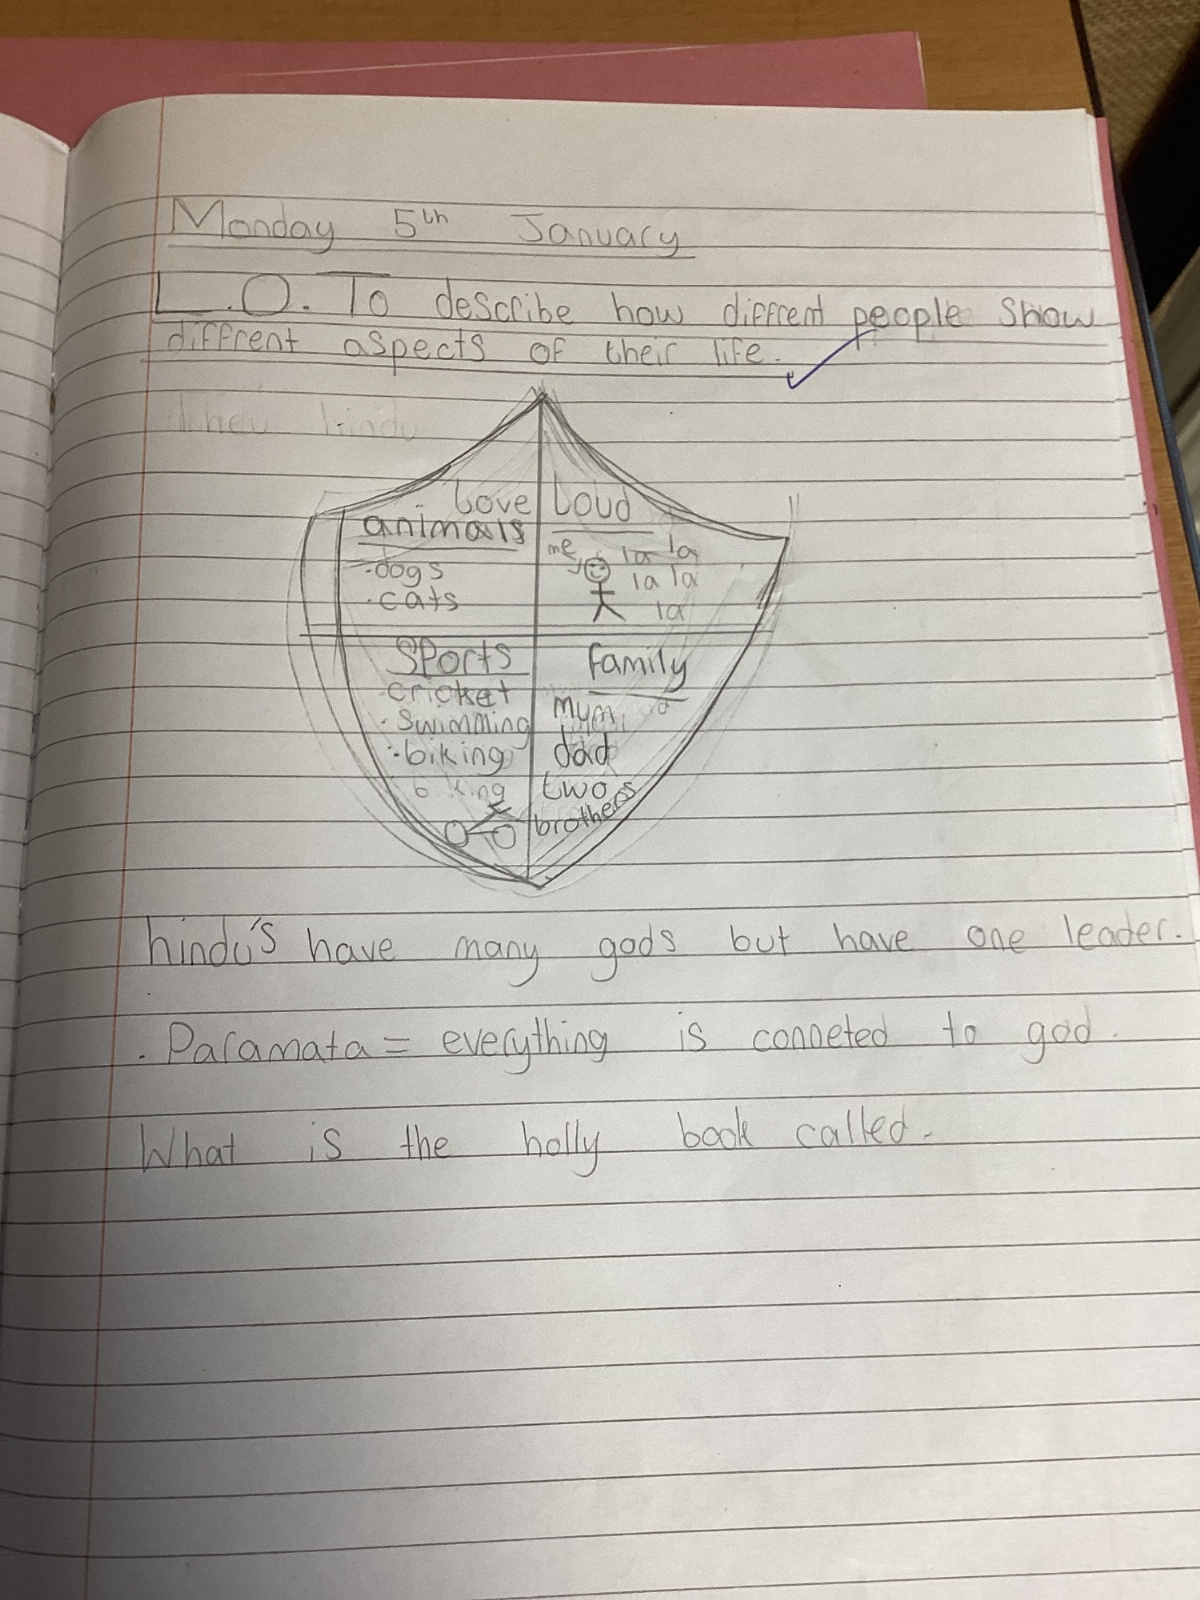 Monday 5th January
L.O. To describe how diffrent people show
diffrent aspects of their life.
hindu
Love
animals
.dogs
.cats
Loud
me
la la
la la
la
Sports
cricket
. swimming
. biking
biking
family
mum
dad
two
brothers
hindu's have many gods but have one leader.
. Paramata = everything is conneted to god.
What is the holly book called.